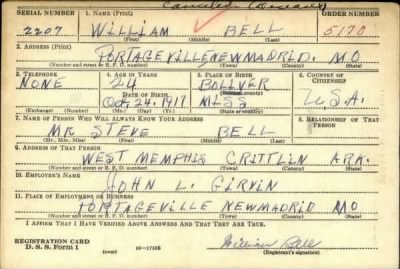 Cancelled (Deceased)
SERIAL NUMBER 1. NAME (Print) ORDER NUMBER
2207 WILLIAM BELL 5170
(First) (Middle) (Last)
2. ADDRESS (Print)
PORTAGEVILLE NEW MADRID. MO
(Number and street or R. F. D. number) (Town) (County) (State)
3. TELEPHONE 4. AGE IN YEARS 5. PLACE OF BIRTH 6. COUNTRY OF CITIZENSHIP
NONE 24 BOLIVER U.S.A.
DATE OF BIRTH (Town or county)
Oct. 24. 1917 MISS
(Exchange) (Number) (Mo.) (Day) (Yr.) (State or country)
7. NAME OF PERSON WHO WILL ALWAYS KNOW YOUR ADDRESS 8. RELATIONSHIP OF THAT PERSON
MR STEVE BELL
(Mr., Mrs., Miss) (First) (Middle) (Last)
9. ADDRESS OF THAT PERSON
WEST MEMPHIS CRITTLIN ARK.
(Number and street or R. F. D. number) (Town) (County) (State)
10. EMPLOYER'S NAME
JOHN L. GIRVIN
11. PLACE OF EMPLOYMENT OR BUSINESS
PORTAGEVILLE NEW MADRID MO
(Number and street or R. F. D. number) (Town) (County) (State)
I AFFIRM THAT I HAVE VERIFIED ABOVE ANSWERS AND THAT THEY ARE TRUE.
REGISTRATION CARD
D. S. S. Form 1 (over) William Bell
(Registrant's signature)